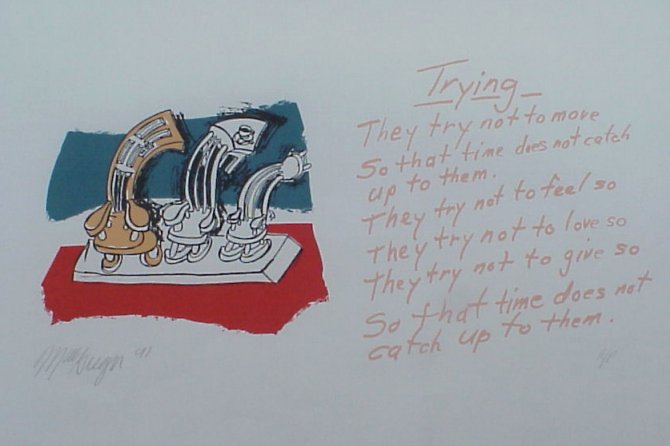 Trying
They try not to move
So that time does not catch
up to them.
They try not to feel so
They try not to love so
They try not to give so
So that time does not
catch up to them.